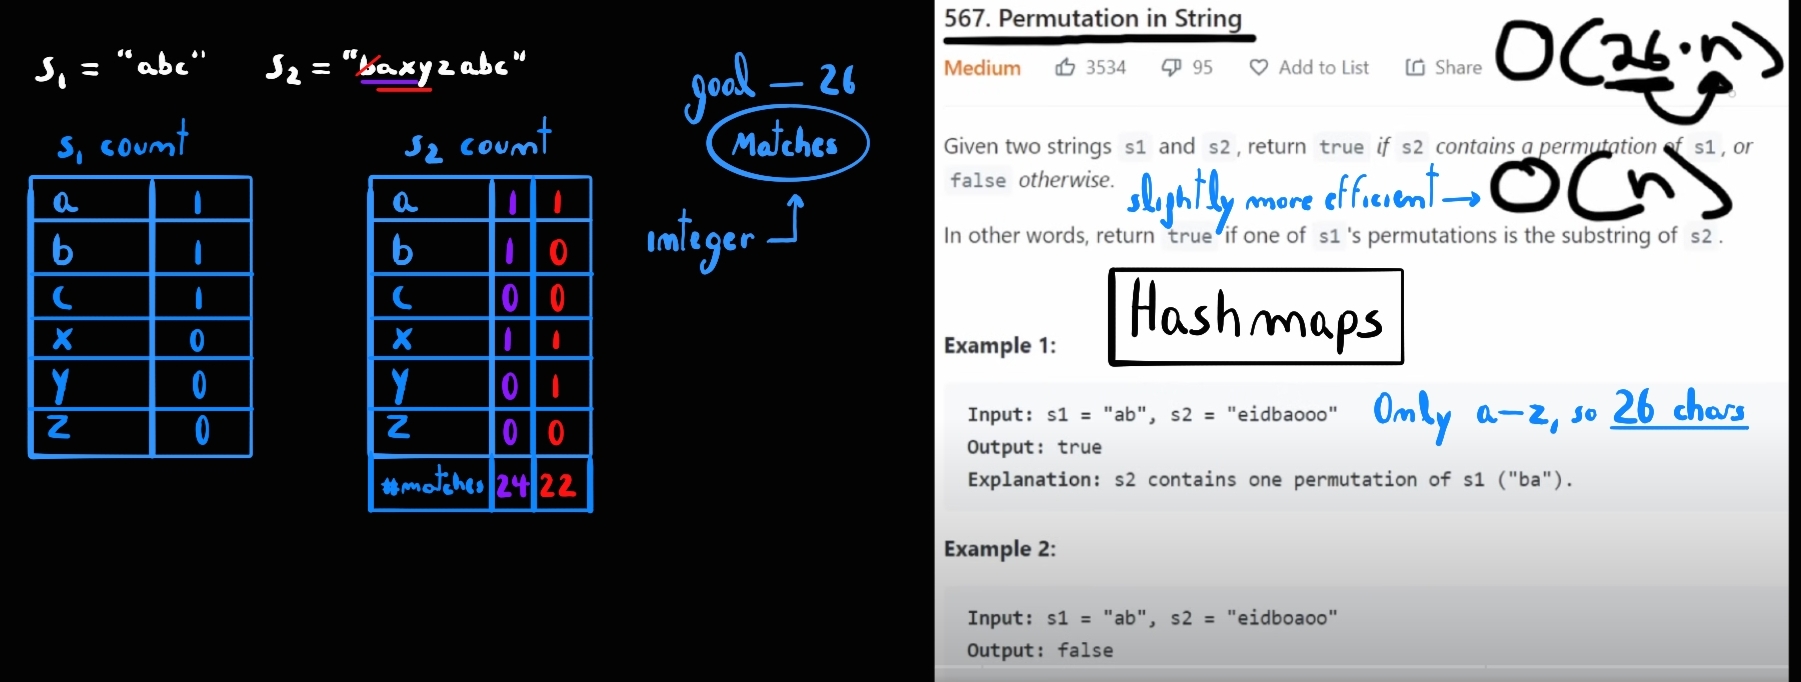 S₁ = "abc" S₂ = "baxyzabc"
S₁ count
a 1
b 1
c 1
x 0
y 0
z 0
S₂ count
a 1 1
b 1 0
c 0 0
x 1 1
y 0 1
z 0 0
#matches 24 22
goal — 26
Matches
integer
567. Permutation in String
O(26·n)
Medium 3534 95 Add to List Share
Given two strings s1 and s2, return true if s2 contains a permutation of s1, or
false otherwise.
slightly more efficient → O(n)
In other words, return true if one of s1's permutations is the substring of s2.
Hashmaps
Example 1:
Input: s1 = "ab", s2 = "eidbaooo"
Only a-z, so 26 chars
Output: true
Explanation: s2 contains one permutation of s1 ("ba").
Example 2:
Input: s1 = "ab", s2 = "eidboaoo"
Output: false